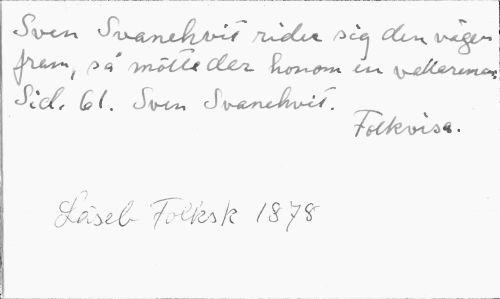 Sven Svanehvit rider sig den vägen
fram, så mötte der honom en vallareman,
Sid. 61. Sven Svanehvit.
Folkvisa.
Läseb Folksk 1878